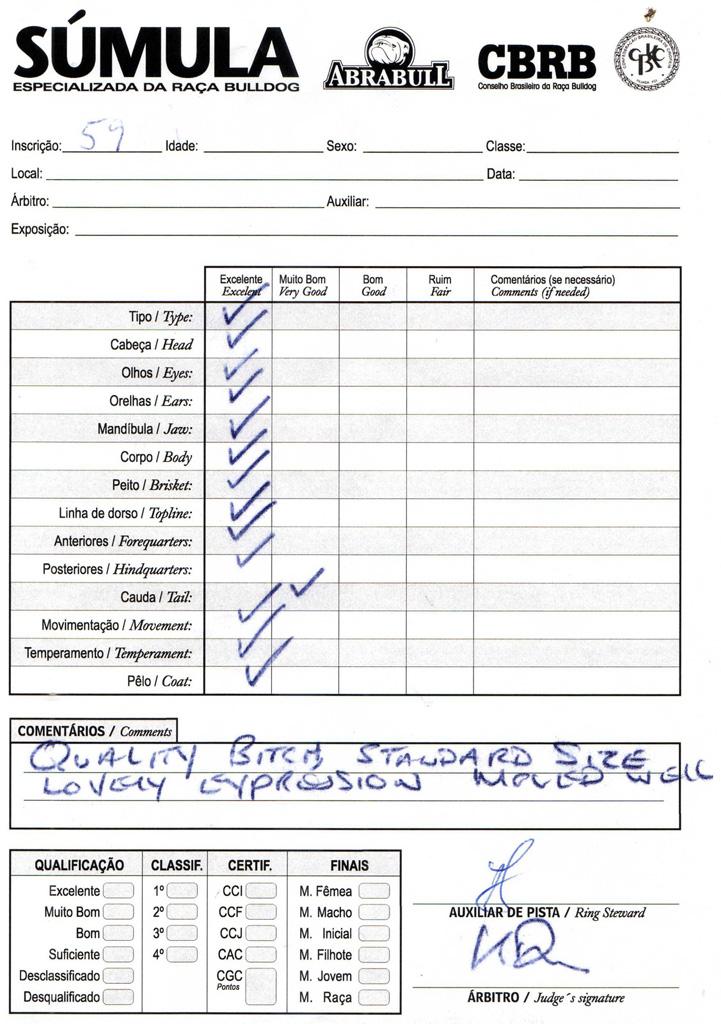 SÚMULA
ESPECIALIZADA DA RAÇA BULLDOG
ABRABULL
CBRB
Conselho Brasileiro da Raça Bulldog
CBKC
Inscrição: 59 Idade: Sexo: Classe:
Local: Data:
Árbitro: Auxiliar:
Exposição:
Excelente Muito Bom Bom Ruim Comentários (se necessário)
Excelent Very Good Good Fair Comments (if needed)
Tipo / Type:
Cabeça / Head
Olhos / Eyes:
Orelhas / Ears:
Mandíbula / Jaw:
Corpo / Body
Peito / Brisket:
Linha de dorso / Topline:
Anteriores / Forequarters:
Posteriores / Hindquarters:
Cauda / Tail:
Movimentação / Movement:
Temperamento / Temperament:
Pêlo / Coat:
COMENTÁRIOS / Comments
QUALITY BITCH, STANDARD SIZE
LOVELY EXPRESSION MOVED WELL
QUALIFICAÇÃO CLASSIF. CERTIF. FINAIS
Excelente 1º CCI M. Fêmea
Muito Bom 2º CCF M. Macho
Bom 3º CCJ M. Inicial
Suficiente 4º CAC M. Filhote
Desclassificado CGC M. Jovem
Pontos
Desqualificado M. Raça
AUXILIAR DE PISTA / Ring Steward
ÁRBITRO / Judge´s signature